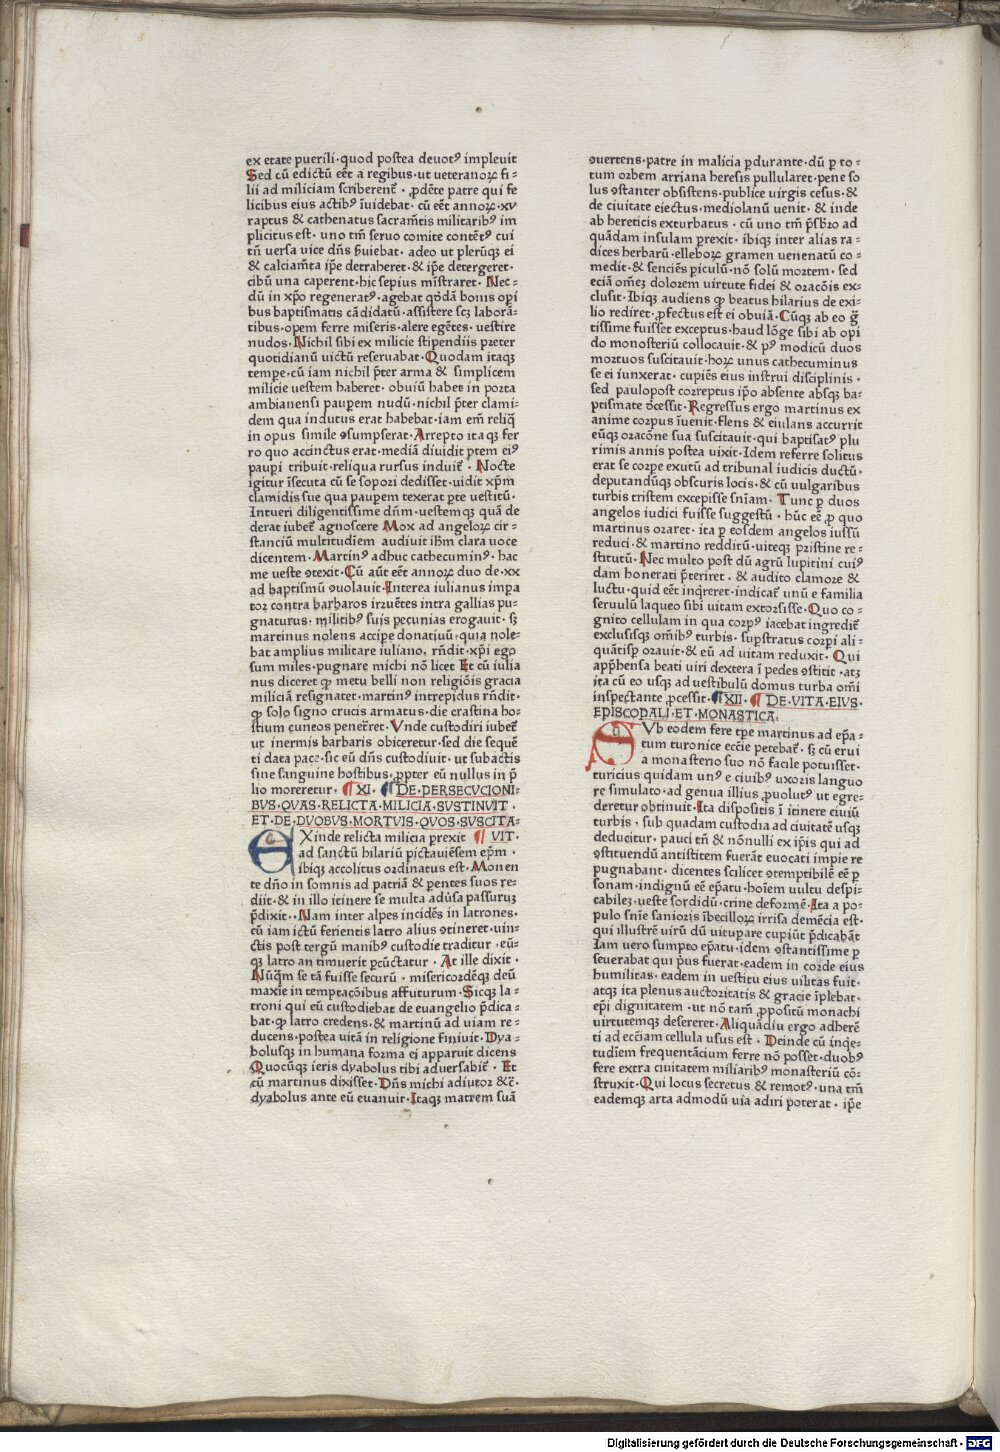 ex etate puerili·quod postea deuotꝰ impleuit
Sed cū edictū eēt a regibus·ut ueteranoꝝ fi-
lii ad miliciam scriberent̄· ꝓdēte patre qui fe
licibus eius actibꝰ īuidebat· cū eēt annoꝝ·xv
raptus & cathenatus sacram̄tis militaribꝰ im
plicitus est· uno tm̄ seruo comite contētꝰ cui
tn̄ uersa uice dn̄s ẜuiebat· adeo ut plerūqꝫ ei
& calciam̄ta ip̄e detraheret· & ip̄e detergeret·
cibū una caperent·hic sepius mīstraret· Nec-
dū in xp̄o regeneratꝰ·agebat qͦdā bonis op̄i
bus baptismatis cādidatū·assistere scꝫ laborā-
tibus·opem ferre miseris·alere egētes·uestire
nudos·Nichil sibi ex milicie stipendiis p̄ter
quotidianū uictū reseruabat·Quodam itaqꝫ
tempe·cū iam nichil p̄ter arma & simplicem
milicie uestem haberet·obuiū habet in porta
ambianensi paupem nudū·nichil p̄ter clami-
dem qua indutus erat habebat·iam em̄ reliq̄
in opus simile ꝯsumpserat·Arrepto itaqꝫ fer
ro quo accinctus erat·mediā diuidit ꝑtem eiꝰ
paupi tribuit·reliqua rursus induit̄· Nocte
igitur īsecuta cū se sopori dedisset·uidit xp̄m
clamidis sue qua paupem texerat ꝑte uestitū·
Intueri diligentissime dn̄m·uestemqꝫ quā de
derat iubet̄ agnoscere Mox ad angeloꝝ cir-
stanciū multitudiem audiuit ibm̄ clara uoce
dicentem·Martinꝰ adhuc cathecuminꝰ·hac
me ueste ꝯtexit·Cū aūt eēt annoꝝ duo de·xx
ad baptismū ꝯuolauit·Interea iulianus impa
tor contra barbaros irruētes intra gallias pu-
gnaturus·militibꝰ suis pecunias erogauit·sꝫ
martinus nolens accipe donatiuū·quia nole-
bat amplius militare iuliano·rn̄dit·xp̄i ego
sum miles·pugnare michi nō licet Et cū iulia
nus diceret ꝙ metu belli non religiōis gracia
miliciā resignaret·martinꝰ intrepidus rn̄dit·
ꝙ solo signo crucis armatus·die crastina ho-
stium cuneos penet̄ret·Vnde custodiri iubet̄
ut inermis barbaris obiceretur·sed die sequē
ti data pace·sic eū dn̄s custodiuit·ut subactis
sine sanguine hostibus·ꝓpter eū nullus in p̄
lio moreretur· ¶XI· ¶DE·PERSECVCIONI-
BVS·QVAS·RELICTA·MILICIA·SVSTINVIT·
ET·DE·DVOBVS·MORTVIS·QVOS·SVSCITA-
EXinde relicta milicia ꝑrexit ¶ VIT·
ad sanctū hilariū pictauiēsem ep̄m·
ibiqꝫ accolitus ordinatus est·Monen
te dn̄o in somnis ad patriā & ꝑentes suos re-
diit·& in illo itinere se multa aduͥsa passuruꝫ
p̄dixit··Nam inter alpes incidēs in latrones·
cū iam ictū ferientis latro alius ꝯtineret·uin-
ctis post tergū manibꝰ custodie traditur·eū-
qꝫ latro an timuerit ꝑcūctatur· At ille dixit·
Nūq̄m se tā fuisse securū· misericordēqꝫ deū
maxīe in temptacōibus affuturum·Sicqꝫ la-
troni qui eū custodiebat de euangelio p̄dica-
bat·ꝙ latro credens·& martinū ad uiam re-
ducens·postea uitā in religione finiuit·Dya-
bolusqꝫ in humana forma ei apparuit dicens
Quocūqꝫ ieris dyabolus tibi aduersabit̄· Et
cū martinus dixisset·Dn̄s michi adiutor &c̄·
dyabolus ante eū euanuit·Itaqꝫ matrem suā
ꝯuertens·patre in malicia ꝑdurante·dū ꝑ to-
tum orbem arriana heresis pullularet·pene so
lus ꝯstanter obsistens·publice uirgis cesus·&
de ciuitate eiectus·mediolanū uenit·& inde
ab hereticis exturbatus· cū uno tm̄ p̄sb̄ro ad
quādam insulam ꝑrexit·ibiqꝫ inter alias ra-
dices herbarū·elleboꝝ gramen uenenatū co-
medit·& senciēs ꝑiculū·nō solū mortem·sed
eciā omēꝫ dolorem uirtute fidei & oracōis ex-
clusit·Ibiqꝫ audiens ꝙ beatus hilarius de exi-
lio rediret·ꝓfectus est ei obuiā·Cūqꝫ ab eo g̊
tissime fuisset exceptus·haud lōge sibi ab opi
do monasteriū collocauit·& pꝰ modicū duos
mortuos suscitauit·hoꝝ unus cathecuminus
se ei iunxerat·cupiēs eius instrui disciplinis·
sed paulopost correptus ip̄o absente absqꝫ ba-
ptismate ꝺcessit·Regressus ergo martinus ex
anime corpus īuenit·flens & eiulans accurrit
eūqꝫ oracōne sua suscitauit·qui baptisatꝰ plu
rimis annis postea uixit·Idem referre solitus
erat se corpe exutū ad tribunal iudicis ductū·
deputandūqꝫ obscuris locis·& cū uulgaribus
turbis tristem excepisse sn̄iam· Tunc ꝑ duos
angelos iudici fuisse suggestū· hūc eē ꝓ quo
martinus oraret·ita ꝑ eosdem angelos iussū
reduci·& martino redditū·uiteqꝫ pristine re-
stitutū·Nec multo post dū agrū lupitini cuiꝰ
dam honerati p̄teriret·& audito clamore &
luctu·quid eēt inq̄reret·indicat̄ unū e familia
seruulū laqueo sibi uitam extorsisse·Quo co-
gnito cellulam in qua corpꝰ iacebat ingredit̄
exclusisqꝫ om̄ibꝰ turbis·suꝑstratus corpi ali-
quātisꝑ orauit·& eū ad uitam reduxit·Qui
app̄hensa beati uiri dextera ī pedes ꝯstitit·atꝫ
ita cū eo usqꝫ ad uestibulū domus turba om̄i
inspectante ꝓcessit·¶XII·¶DE·VITA·EIVS·
EPISCOPALI·ET·MONASTICA·
SVb eodem fere tp̄e martinus ad ep̄a-
tum turonice ecc̄ie petebat̄·sꝫ cū erui
a monasterio suo nō facile potuisset·
turicius quidam unꝰ e ciuibꝰ uxoris languo
re simulato·ad genua illius ꝓuolutꝰ ut egre-
deretur obtinuit·Ita dispositis ī itinere ciuiū
turbis·sub quadam custodia ad ciuitatē usqꝫ
deducitur·pauci tn̄ & nōnulli ex ip̄is qui ad
ꝯstituendū antistitem fuerāt euocati impie re
pugnabant·dicentes scilicet ꝯtemptibilē eē ꝑ
sonam·indignū eē ep̄atu·hoīem uultu despi-
cabileꝫ·ueste sordidū·crine deformē·Ita a po-
pulo sn̄ie sanioris ībecilloꝝ irrisa demēcia est·
qui illustrē uirū dū uitupare cupiūt p̄dicabāt
Iam uero sumpto ep̄atu·idem ꝯstantissime ꝑ
seuerabat qui pͥus fuerat·eadem in corde eius
humilitas·eadem in uestitu eius uilitas fuit·
atqꝫ ita plenus auctoritatis & gracie īplebat·
ep̄i dignitatem·ut nō tam̄ ꝓpositū monachi
uirtutemqꝫ desereret·Aliquādiu ergo adherē
ti ad ecc̄iam cellula usus est· Deinde cū inq̇e-
tudīem frequentācium ferre nō posset·duobꝰ
fere extra ciuitatem miliaribꝰ monasteriū cō-
struxit·Qui locus secretus & remotꝰ·una tm̄
eademqꝫ arta admodū uia adiri poterat· ip̄e
Digitalisierung gefördert durch die Deutsche Forschungsgemeinschaft - DFG